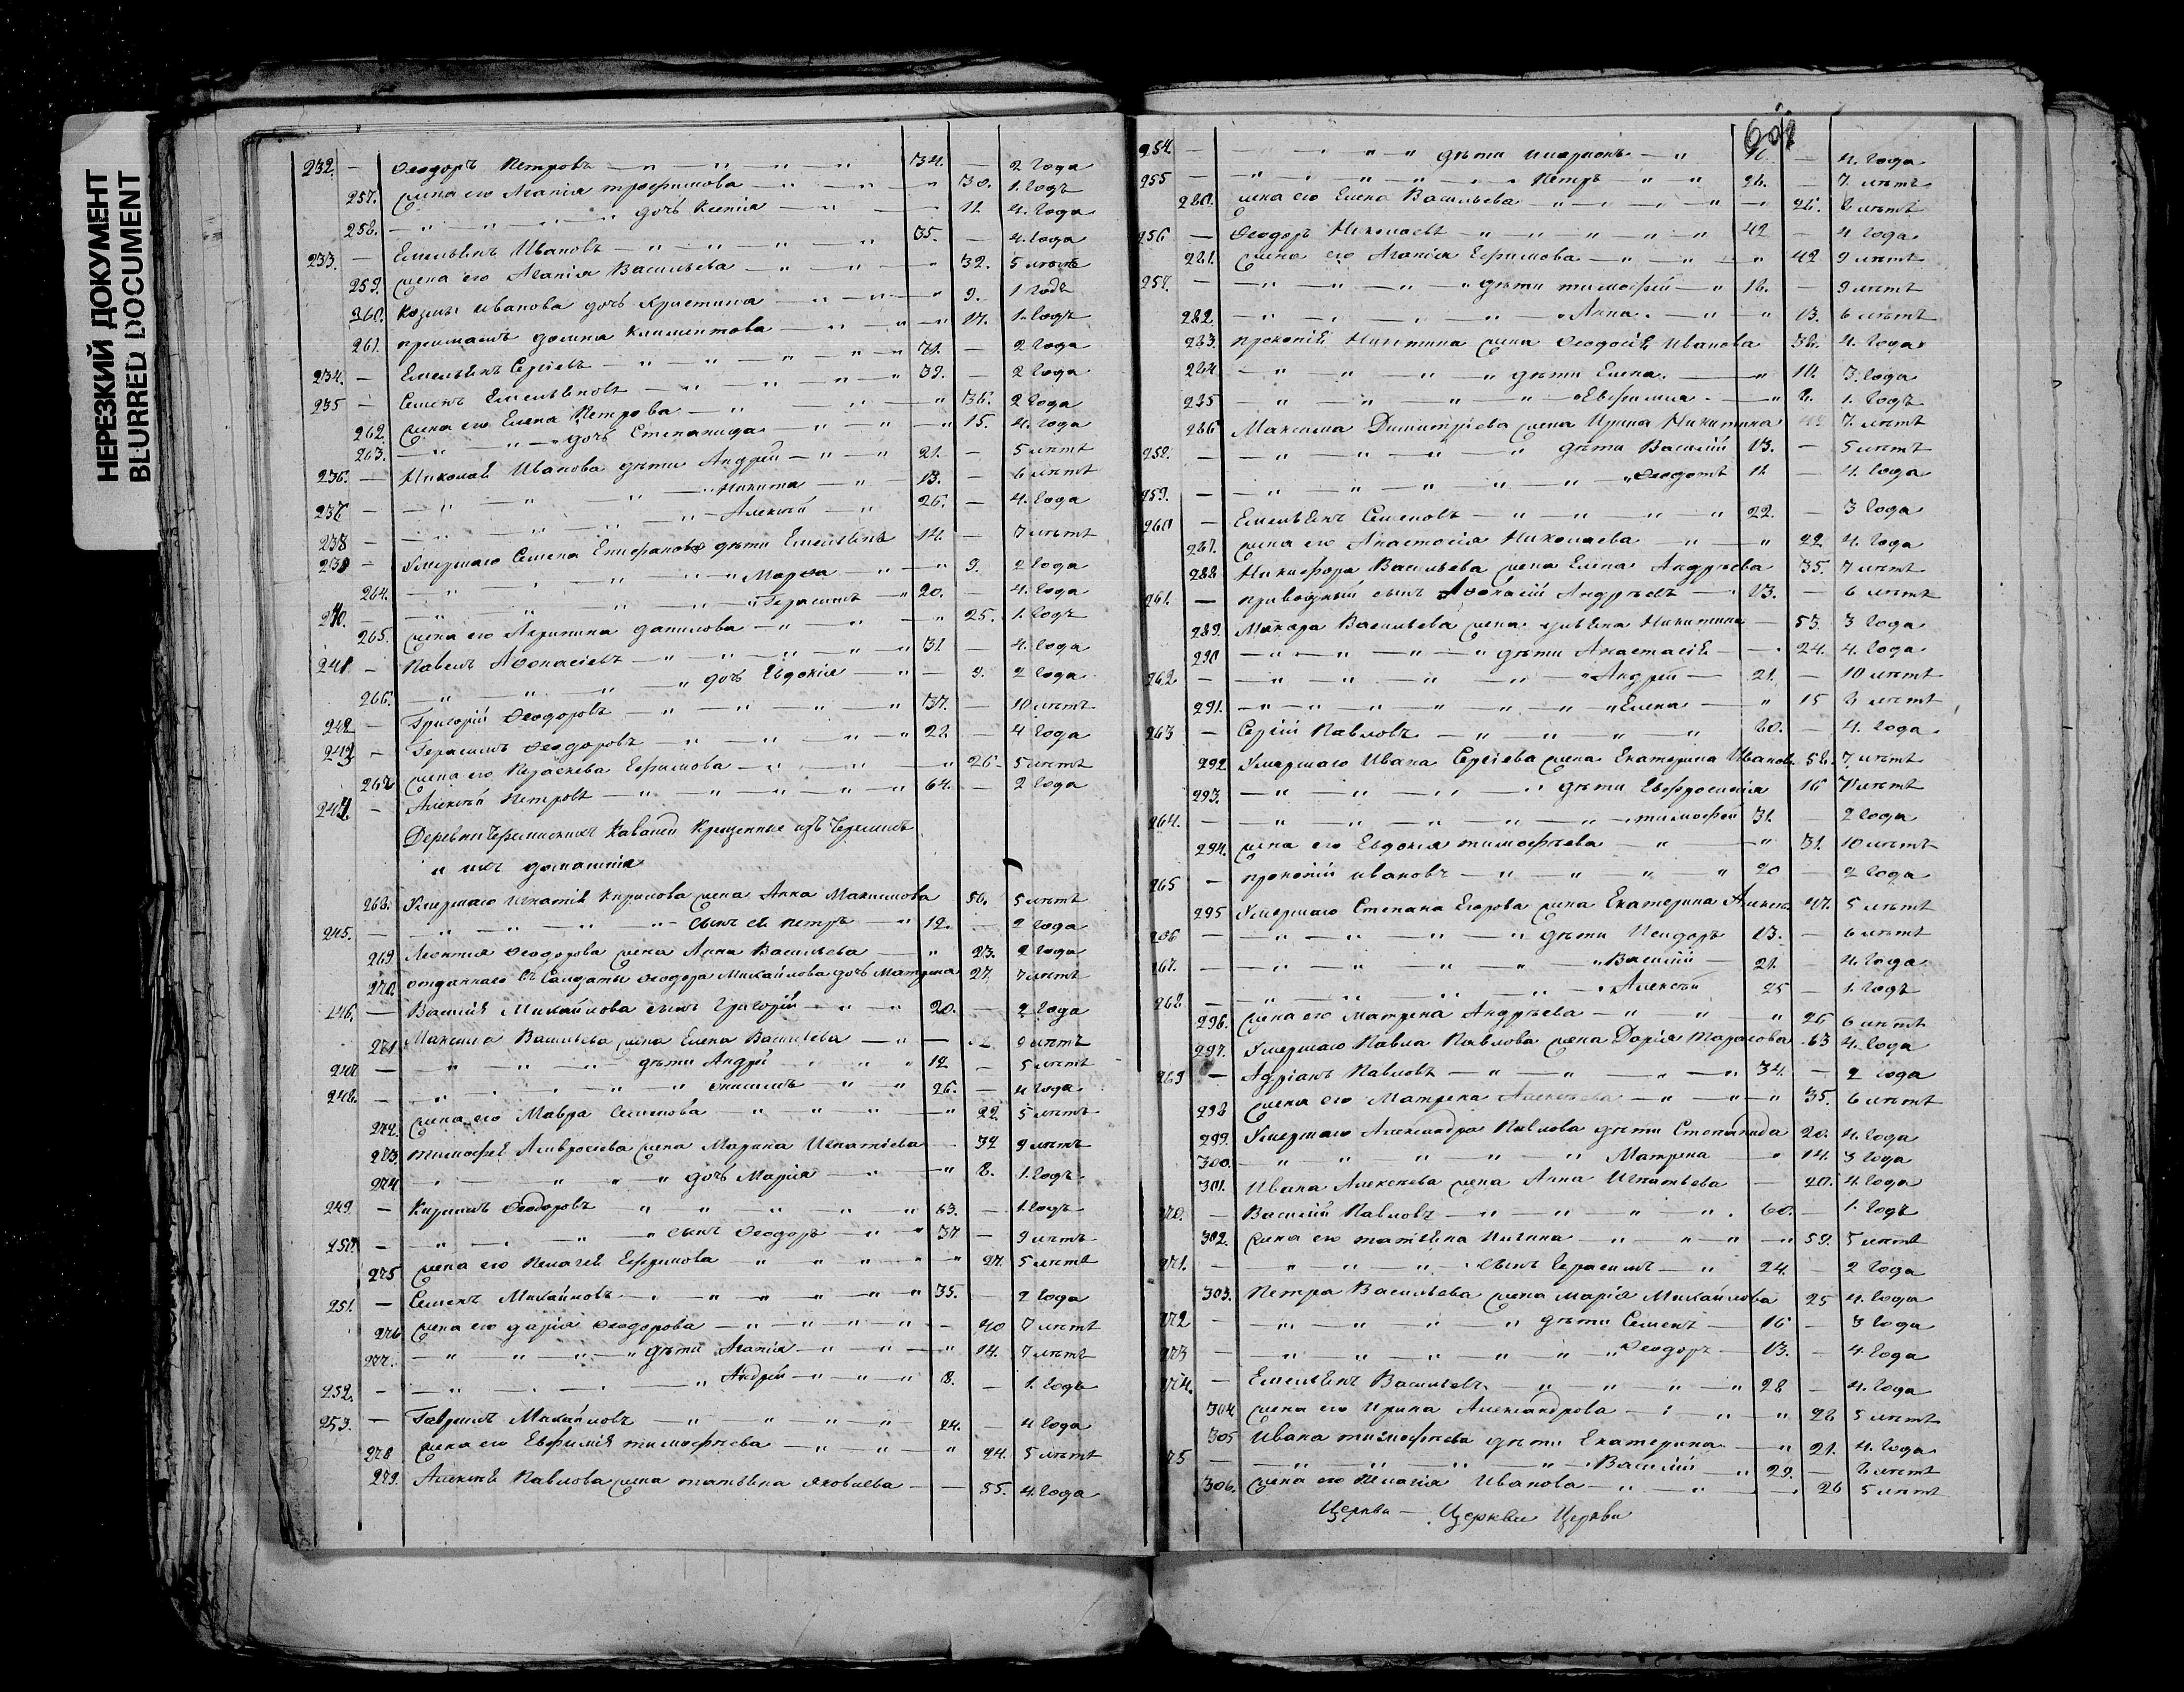 НЕРЕЗКИЙ ДОКУМЕНТ
BLURRED DOCUMENT
232. — Ѳеодоръ Петровъ — 34. — 2 года
257. жена его Агапія Трофимова — 30. 1. годъ
258. дочь Ксенія — 11 4. года
233. — Емельянъ Ивановъ — 35. — 4. года
259. жена его Агапія Васильева — 32. 5 лѣтъ
260. Козмы Иванова дочь Христина — 9. 1 годъ
261. Климентова — 17. 1. годъ
234. — Емельянъ Сергіевъ — 71. — 2 года
235 — Семенъ Емельяновъ — 39. — 2 года
262. жена его Елена Петрова — 36. 2 года
263. дочь Степанида — 15. 4. года
236. — Николая Иванова дѣти Андрей — 21. — 5 лѣтъ
237. — Никита — 13. — 6 лѣтъ
238 — Алексѣй — 26. — 4. года
239 — Умершаго Семена Епифанова дѣти Емельянъ 14. — 7 лѣтъ
264. Марѳа — 9. 2 года
240. — Герасимъ — 20. — 4. года
265. жена его Агрипина Данилова — 25. 1. годъ
241 — Павелъ Аѳонасіевъ — 31 — 4. года
266. дочь Евдокія — 9. 2 года
242 — Григорій Ѳеодоровъ — 37. — 10 лѣтъ
243 — Герасимъ Ѳеодоровъ — 22 — 4 года
267 жена его Параскева Ефимова — 26 5 лѣтъ
244. — Алексѣй Петровъ — 64. — 2 года
Деревни Черемискихъ Каваней Крещенные изъ Черемисъ
и ихъ домашнія
268. Умершаго Игнатія Кирилова жена Анна Максимова 50. 5 лѣтъ
245. — сынъ ея Петръ — 12. — 2 года
269 Леонтія Ѳеодорова жена Анна Васильева — 23. 2 года
270. отданнаго въ Солдаты Ѳеодора Михайлова дочь Матрена 27. 7 лѣтъ
246. — Василія Михайлова сынъ Григорій — 20. — 2 года
271 Максима Васильева жена Елена Васильева — 9 лѣтъ
247 — дѣти Андрей 12 — 5 лѣтъ
248. — Онисимъ — 26. — 4 года
272. жена его Мавра Семенова 22. 5 лѣтъ
273. Тимофея Амвросіева жена Марина Игнатіева — 32 9 лѣтъ
274 дочь Марія — 8. 1. годъ
249. — Кирилъ Ѳеодоровъ 63. — 1. годъ
250. — сынъ Ѳеодоръ — 37 — 9 лѣтъ
275 жена его Пелагея Ефимова 27. 5 лѣтъ
251. — Семенъ Михайловъ 35. — 2 года
276 жена его Дарія Ѳеодорова — 40 7 лѣтъ
277. дѣти Агапія — 14. 7 лѣтъ
252. — Андрей — 8. — 1. годъ
253. — Гаврилъ Михайловъ — 24. — 4 года
278 жена его Евфимія Тимофеева — 24. 5 лѣтъ
279. Алексѣя Павлова жена Татьяна Яковлева — 55. 4. года
254. — дѣти Иларіонъ — 11. — 4. года
255 — Петръ — 26. — 7. лѣтъ
280. жена его Елена Васильева — 26. 8 лѣтъ
256 — Ѳеодоръ Николаевъ 42 — 4 года
281. жена его Агапія Ефимова — 42 9 лѣтъ
257. — дѣти Тимофей — 18. — 9 лѣтъ
282. Анна. — 13. 6 лѣтъ
283. Прокопія Никитина жена Ѳеодосія Иванова 38. 4. года
284 дѣти Елена. — 10. 3. года
285 Евфимія. — 8. 1. годъ
286 Максима Димитріева жена Ирина Никитина 7. лѣтъ
258. — дѣти Василій 13. — 5 лѣтъ
259. — Ѳеодотъ 11 — 4. года
260 — Емельянъ Семеновъ 22. — 3 года
287. жена его Анастасія Николаева — 22 4. года
288 Никифора Васильева жена Елена Андреева 35. 7 лѣтъ
261. — приводный сынъ Аѳонасій Андреевъ — 13. — 6 лѣтъ
289. Макара Васильева жена Ульяна Никитина — 53 3 года
290 дѣти Анастасія — 24. 4. года
262 — Андрей — 21. — 10 лѣтъ
291. Елена 15 8 лѣтъ
263 — Сергій Павловъ 20. — 4. года
292 Умершаго Ивана Сергіева жена Екатерина Иванов. 58. 7 лѣтъ
293. дѣти Евфросинія 16 7 лѣтъ
264. — Тимофей 31. — 2 года
294. жена его Евдокія Тимофеева — 31. 10 лѣтъ
265 — Прокопій Ивановъ 20 — 2 года
295 Умершаго Степана Егорова жена Екатерина Алексѣ. 47. 5 лѣтъ
266 — дѣти Исидоръ 13. — 6 лѣтъ
267. — Василій — 21. — 4. года
268 — Алексѣй 25 — 1. годъ
296. жена его Матрена Андреева — 26 6 лѣтъ
297. Умершаго Павла Павлова жена Дарія Тарасова 63 4. года
269 — Адріанъ Павловъ 34. — 2 года
298 жена его Матрена Алексѣева 35. 6 лѣтъ
299. Умершаго Александра Павлова дѣти Степанида 20. 4. года
300. Матрена 14. 3 года
301. Ивана Алексѣева жена Анна Игнатьева — 20. 4. года
270. — Василій Павловъ 60. — 1. годъ
302. жена его Татьяна Ильина 59. 5 лѣтъ
271. — сынъ Герасимъ — 24. — 2 года
303. Петра Васильева жена Марія Михайлова 25 4. года
272 — дѣти Семенъ — 16 — 3 года
273 — Ѳеодоръ — 13. — 4 года
274. — Емельянъ Васильевъ 28 — 4. года
304 жена его Ирина Александрова — 28 5 лѣтъ
305 Ивана Тимофеева дѣти Екатерина 21. 4. года
275 — Василій 29. — 8 лѣтъ
306. жена его Пелагія Иванова — 26 5 лѣтъ
Церкви — Церкви Церкви